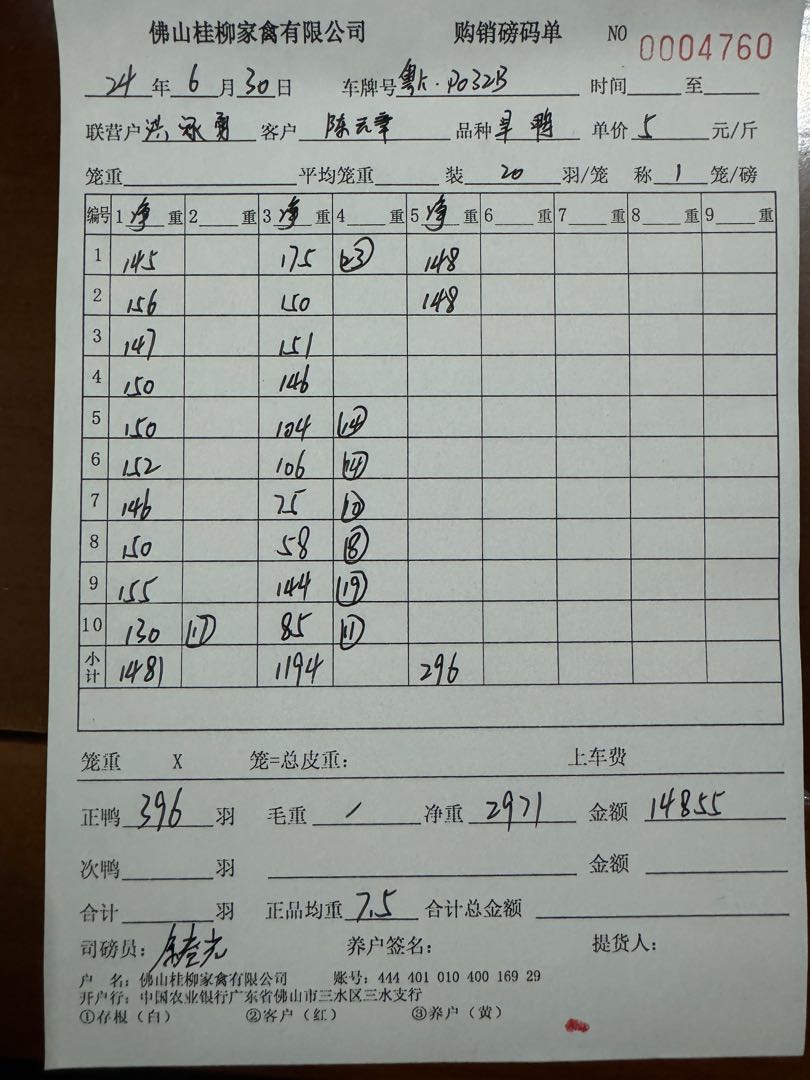 佛山桂柳家禽有限公司 购销磅码单 NO 0004760
24年6月30日 车牌号粤K·P032B 时间 至
联营户洪永勇 客户 品种旱鸭 单价5元/斤
笼重 平均笼重 装20羽/笼 称1笼/磅
编号 1净重 2重 3净重 4重 5净重 6重 7重 8重 9重
1 145 175 ㉓ 148
2 156 150 148
3 147 151
4 150 146
5 150 104 ⑭
6 152 106 ⑭
7 146 75 ⑩
8 150 58 ⑧
9 155 144 ⑲
10 130 ⑰ 85 ⑪
小计 1481 1194 296
笼重 X 笼=总皮重: 上车费
正鸭396羽 毛重 / 净重2971 金额14855
次鸭 羽 金额
合计 羽 正品均重7.5 合计总金额
司磅员: 养户签名: 提货人:
户 名: 佛山桂柳家禽有限公司 账号: 444 401 010 400 169 29
开户行: 中国农业银行广东省佛山市三水区三水支行
①存根（白） ②客户（红） ③养户（黄）